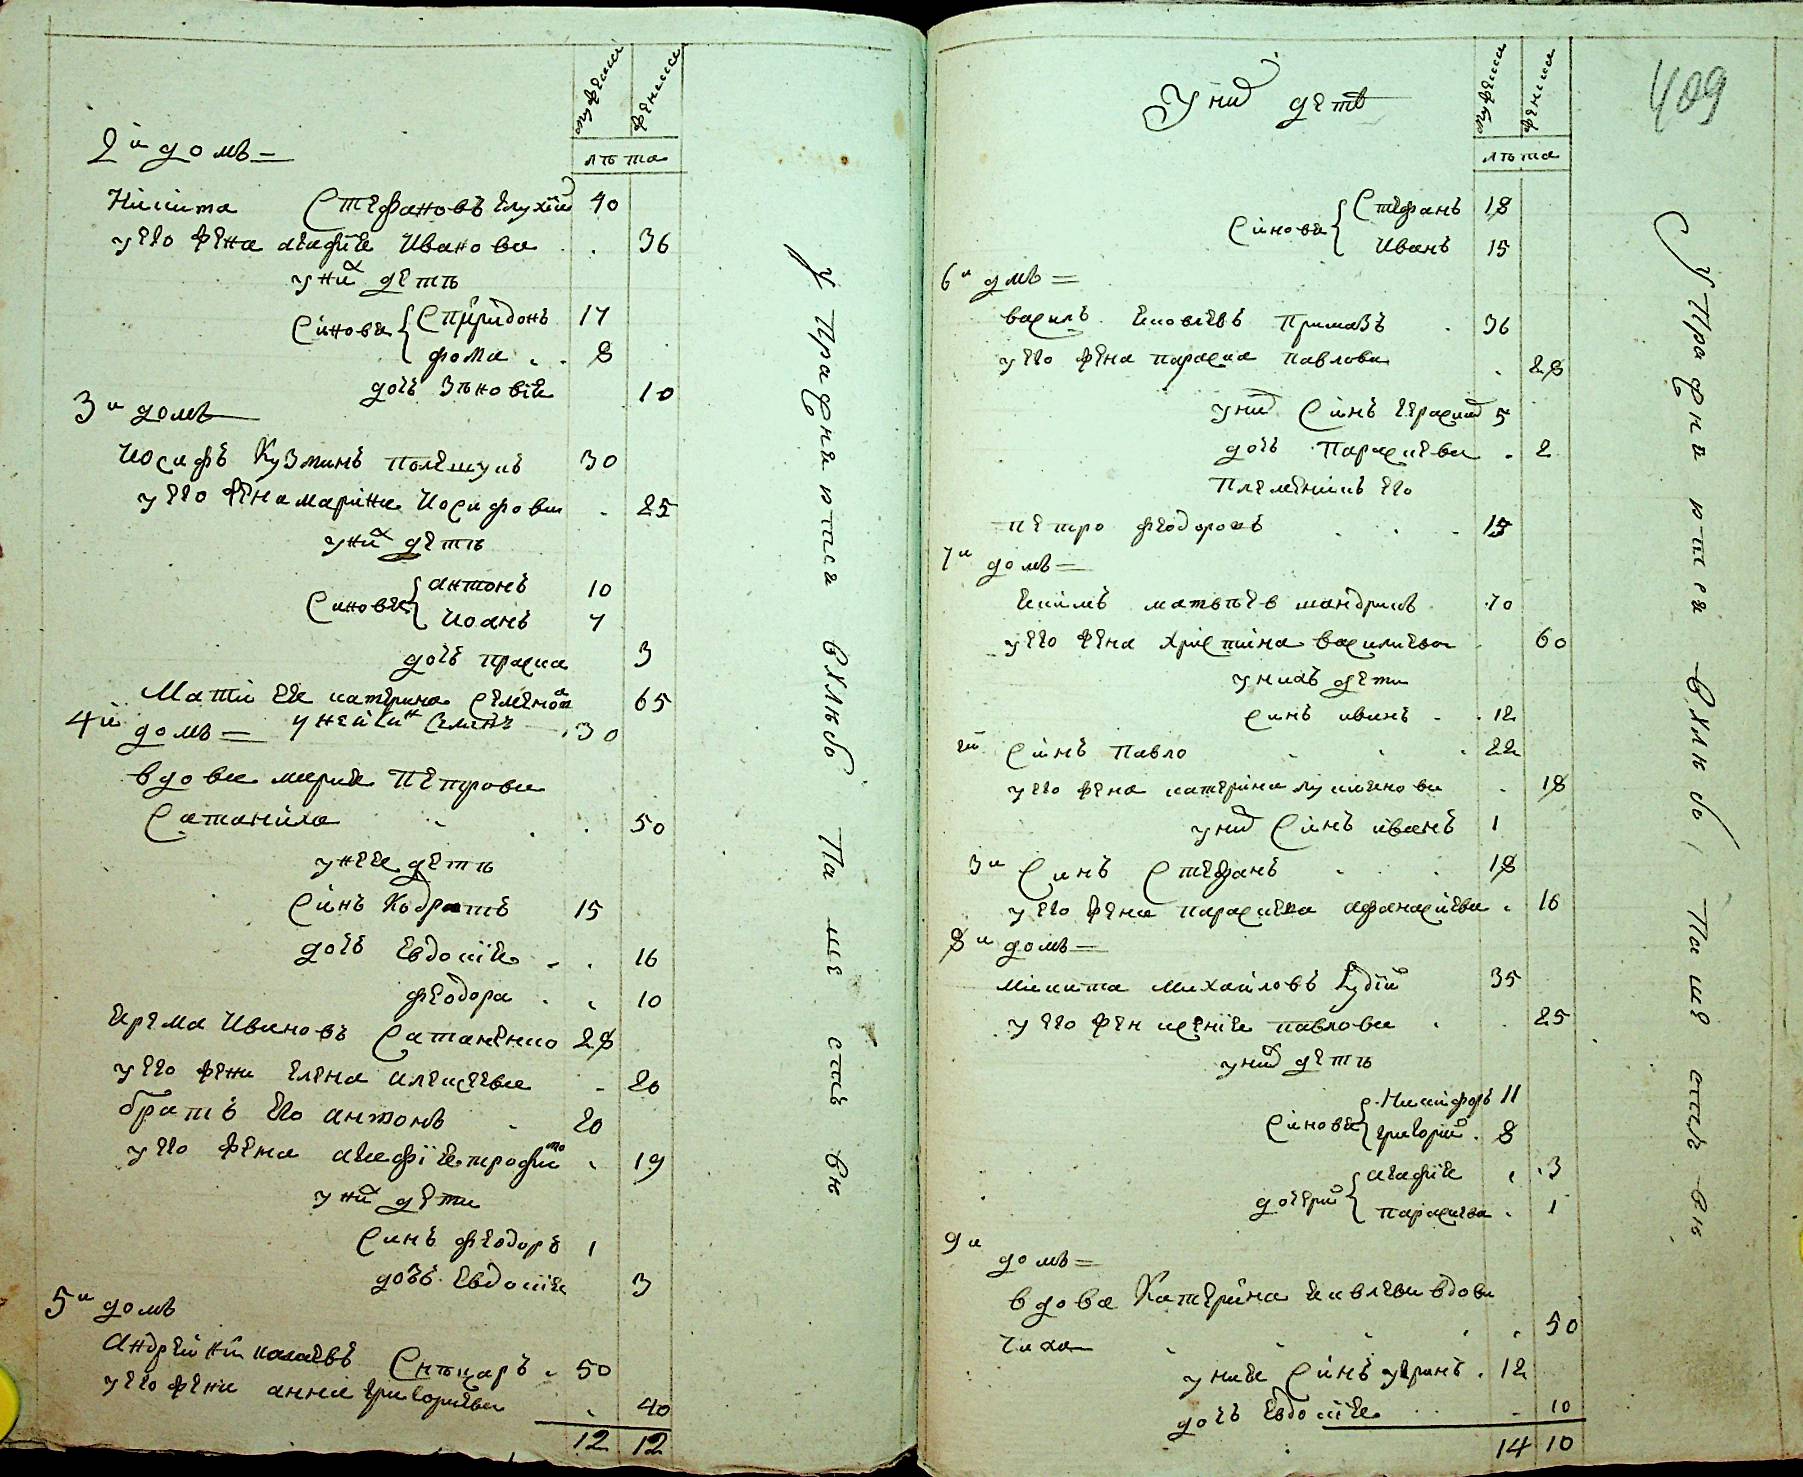 2й домъ
Никита Стефановъ Глухій 40
у его жена агафія Иванова 36
у них дети
Синовя Спиридонъ 17
фома 8
дочъ Зѣновія 10
3й домъ
Иосифъ Кузминъ Полещукъ 30
у его жена марина Иосифова 25
у них дети
Синовя антонъ 10
Иоанъ 7
дочъ праска 3
Мати ея катерина Семенова 65
4й домъ у ней Синъ Семенъ 30
вдова мария Петрова
Сатаниха 50
у нея дети
Синъ Кодратъ 15
дочъ Евдокія 16
феодора 10
Ярема Ивановъ Сатаненко 28
у его жена Елена алексеева 20
братъ его антонъ 20
у его жена агафія трофимо 19
у них дети
Синъ феодоръ 1
дочъ Евдокія 3
5й домъ
андрей николаевъ Снѣцаръ 50
у его жена анна григориева 40
12 12
мужеска
женска
лѣта
у Пра
вхлѣбо
409
У них дети
мужеска
женска
лѣта
Синовя Стефанъ 18
Иванъ 15
6й домъ
василъ Яковлевъ Примакъ 36
у его жена параска павлова 28
у них Синъ герасим 5
дочъ Параскева 2
Племеникъ его
петро феодоровъ 15
7й домъ
Екимъ матвѣев шандрикъ 70
у его жена христина василиева 60
у нихъ дети
синъ иванъ 12
2й Синъ Павло 22
у его жена катерина лукиянова 18
у них Синъ иванъ 1
3й Синъ Стефанъ 18
у его жена параскева афанасиева 16
8й домъ
микита михайловъ Кудій 35
у его жен ксенія павлова 25
у них дети
Синовя Никифоръ 11
григорий 8
дочери агафия 3
параскева 1
9й домъ
вдова Катерина Яковлева вдови
чиха 50
у нея Синъ 12
дочъ Евдокія 10
14 10